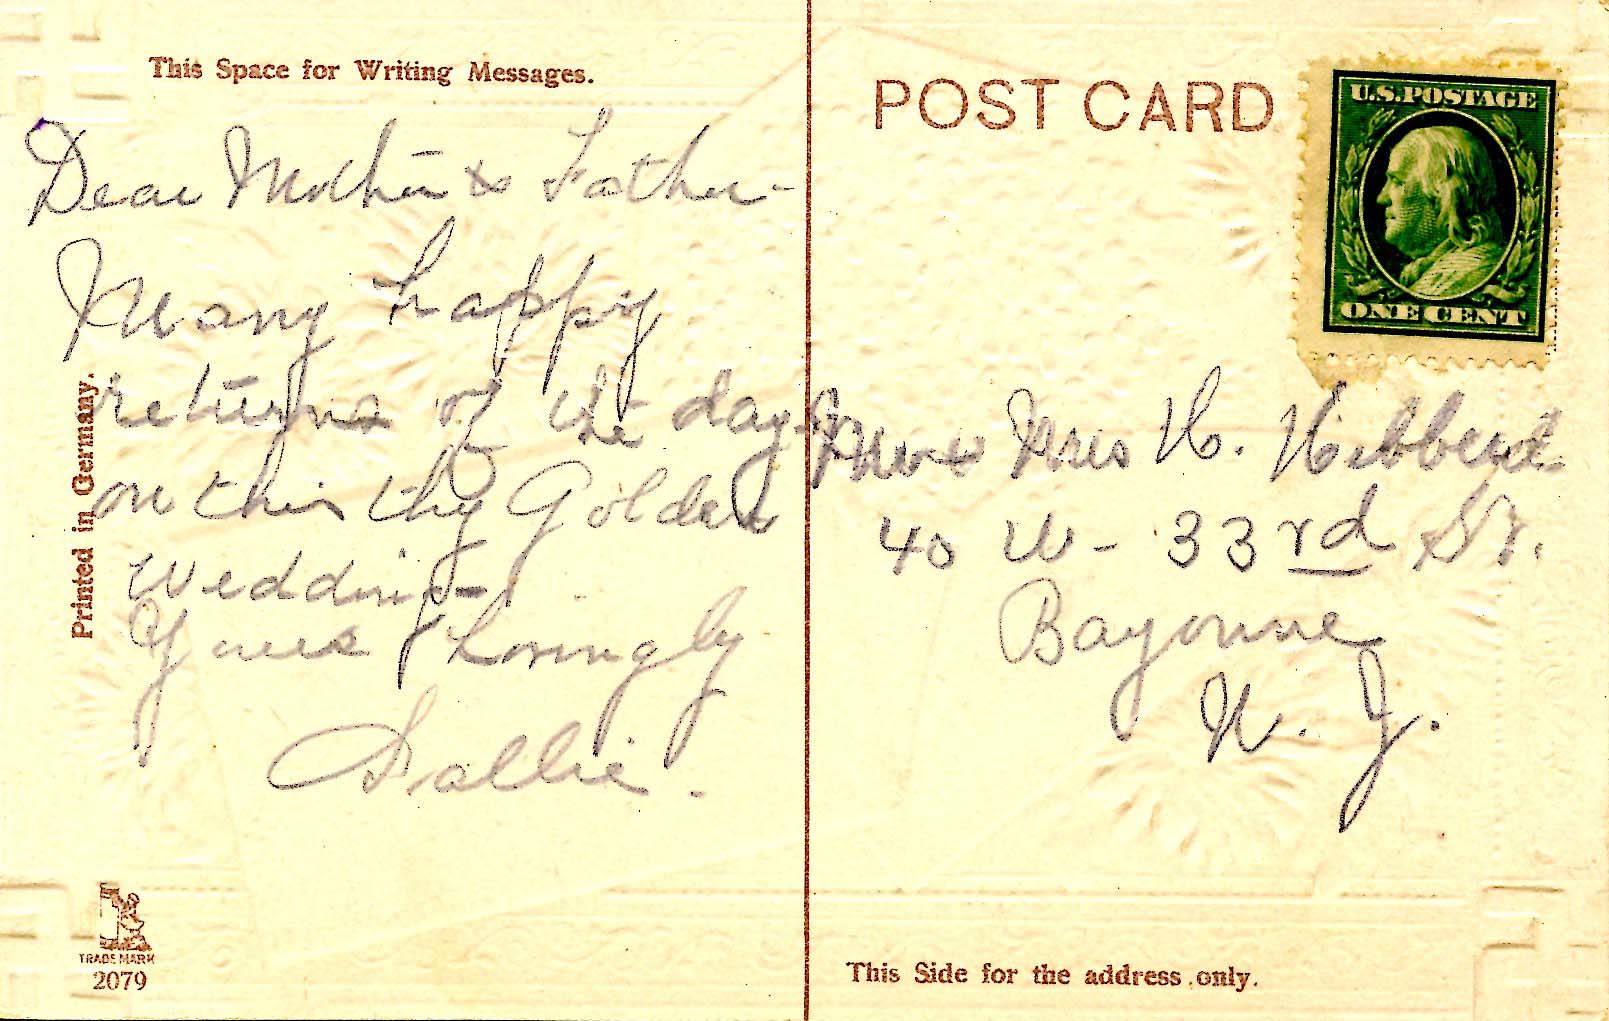 This Space for Writing Messages.
Dear Mother & Father -
Many happy
returns of the day -
on this thy Golden
Wedding -
Yours Lovingly
Sallie.
Printed in Germany.
TRADE MARK
2079
POST CARD
U.S. POSTAGE
ONE CENT
Mr & Mrs H. Hibberd
40 W - 33rd St.
Bayonne
N. J.
This Side for the address only.